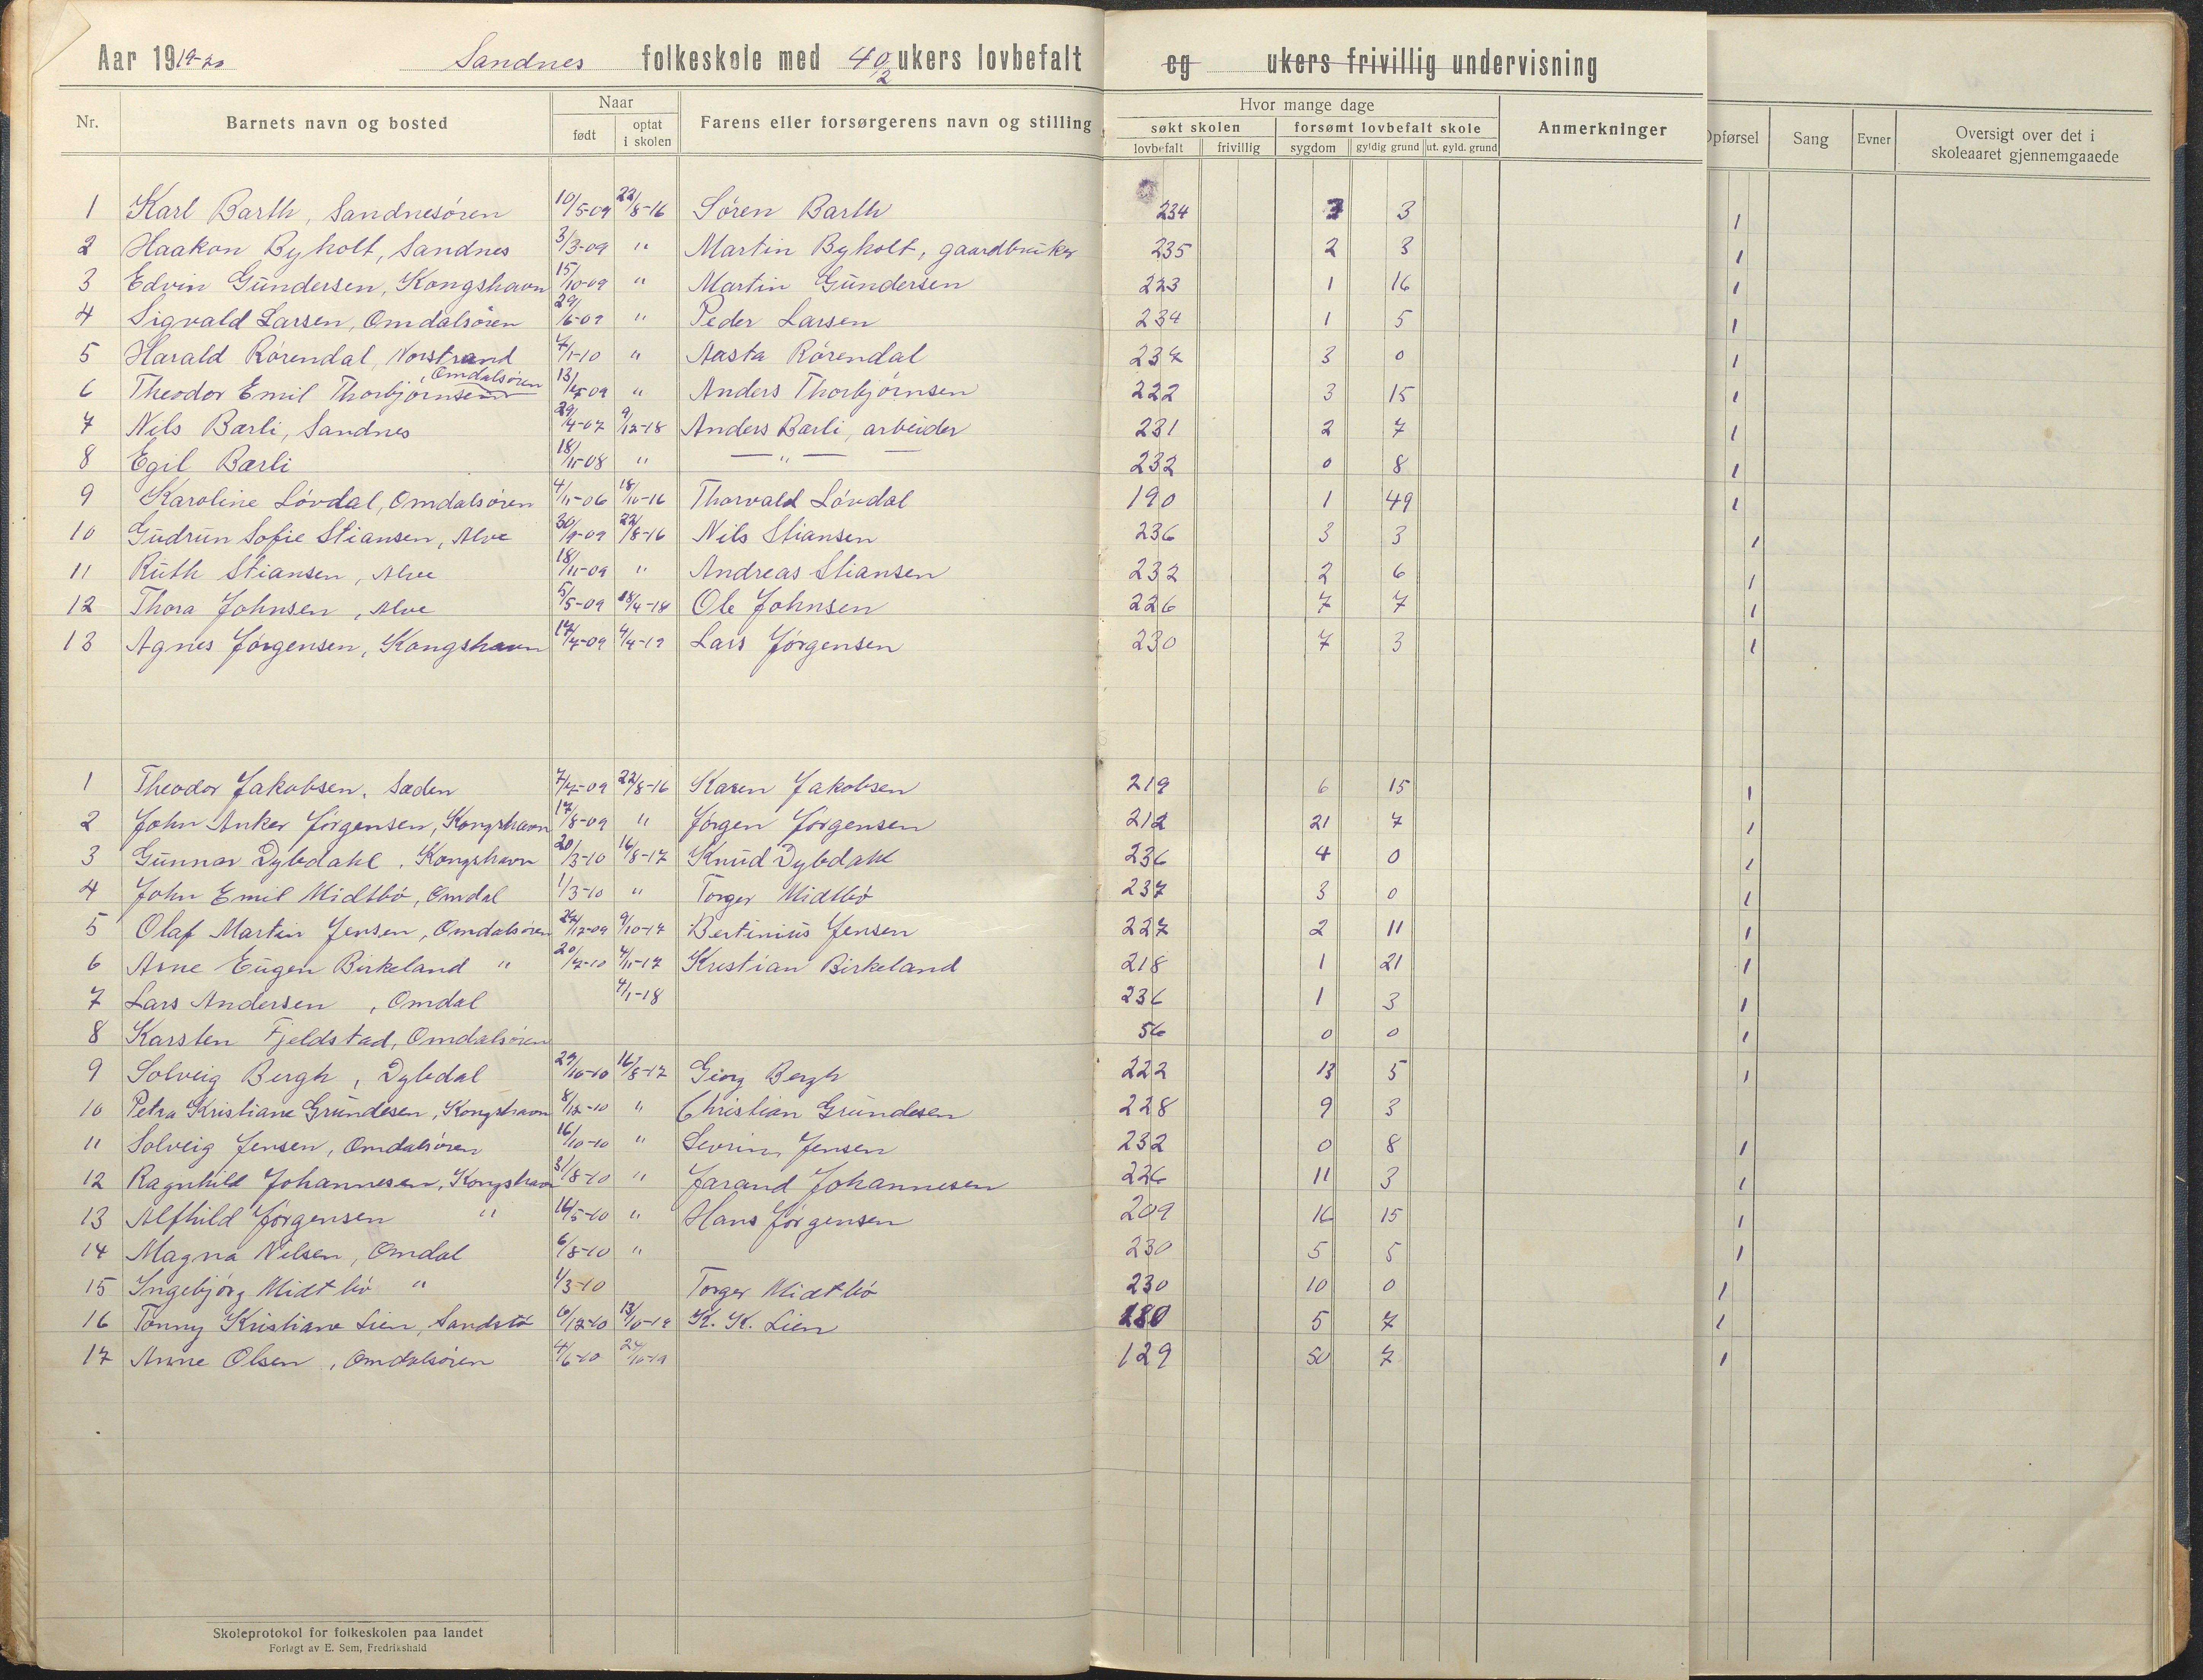 Aar 1919-20 Sandnes folkeskole med 40/2 ukers lovbefalt og ukers frivillig undervisning
Nr. Barnets navn og bosted Naar født optat i skolen Farens eller forsørgerens navn og stilling Hvor mange dage søkt skolen lovbefalt frivillig forsømt lovbefalt skole sygdom gyldig grund ut. gyld. grund Anmerkninger Opførsel Sang Evner Oversigt over det i skoleaaret gjennemgaaede
1 Karl Barth, Sandnesøren 10/5-09 22/8-16 Søren Barth 234 3 3 1
2 Haakon Byholt, Sandnes 3/3-09 " Martin Byholt, gaardbruker 235 2 3 1
3 Edvin Gundersen, Kongshavn 15/10-09 " Martin Gundersen 223 1 16 1
4 Sigvald Larsen, Omdalsøren 29/6-09 " Peder Larsen 234 1 5 1
5 Harald Rørendal, Norstrand 4/1-10 " Aasta Rørendal 237 3 0 1
6 Theodor Emil Thorbjørnsen, Omdalsøren 13/5-09 " Anders Thorbjørnsen 222 3 15 1
7 Nils Bærli, Sandnes 29/4-07 9/12-18 Anders Bærli, arbeider 231 2 7 1
8 Egil Bærli 18/11-08 " — " — — 232 0 8 1
9 Karoline Løvdal, Omdalsøren 4/11-06 18/10-16 Thorvald Løvdal 190 1 49 1
10 Gudrun Sofie Stiansen, Alve 30/9-09 22/8-16 Nils Stiansen 236 3 3 1
11 Ruth Stiansen, Alve 18/11-09 " Andreas Stiansen 232 2 6 1
12 Thora Johnsen, Alve 5/5-09 18/4-18 Ole Johnsen 226 7 7 1
13 Agnes Jørgensen, Kongshavn 17/7-09 4/4-19 Lars Jørgensen 230 7 3 1
1 Theodor Jakobsen, Sæden 7/7-09 22/8-16 Karen Jakobsen 219 6 15 1
2 John Anker Jørgensen, Kongshavn 17/8-09 " Jørgen Jørgensen 212 21 7 1
3 Gunnar Dybdahl, Kongshavn 20/3-10 16/8-17 Knud Dybdahl 236 4 0 1
4 John Emil Midtbø, Omdal 1/3-10 " Torger Midtbø 237 3 0 1
5 Olaf Martin Jensen, Omdalsøren 27/12-09 9/10-17 Bertinius Jensen 227 2 11 1
6 Arne Eugen Birkeland " 20/7-10 4/11-17 Kristian Birkeland 218 1 21 1
7 Lars Andersen, Omdal 4/1-18 236 1 3 1
8 Karsten Fjeldstad, Omdalsøren 56 0 0 1
9 Solveig Bergh, Dybdal 29/10-10 16/8-17 Georg Bergh 222 13 5 1
10 Petra Kristiane Grundesen, Kongshavn 8/12-10 " Christian Grundesen 228 9 3
11 Solveig Jensen, Omdalsøren 16/10-10 " Sevrin Jensen 232 0 8 1
12 Ragnhild Johannesen, Kongshavn 31/8-10 " Jarand Johannesen 226 11 3 1
13 Alfhild Jørgensen " 16/5-10 " Hans Jørgensen 209 16 15 1
14 Magna Nilsen, Omdal 6/8-10 " 230 5 5 1
15 Ingebjørg Midtbø " 1/3-10 Torger Midtbø 230 10 0 1
16 Tonny Kristiane Lien, Sandstø 6/12-10 13/10-19 K. K. Lien 180 5 7 1
17 Anne Olsen, Omdalsøren 4/6-10 27/10-19 129 50 7 1
Skoleprotokol for folkeskolen paa landet
Forlagt av E. Sem, Fredrikshald